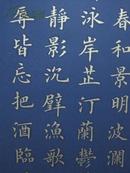 春和景明波瀾
泳岸芷汀蘭鬱
靜影沉璧漁歌
辱皆忘把酒臨